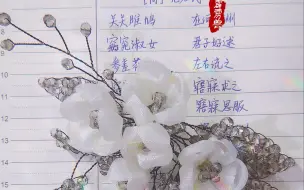 关关雎鸠 在河 洲
窈窕淑女 君子好逑
参差荇 左右流之
寤寐求之
寤寐思服